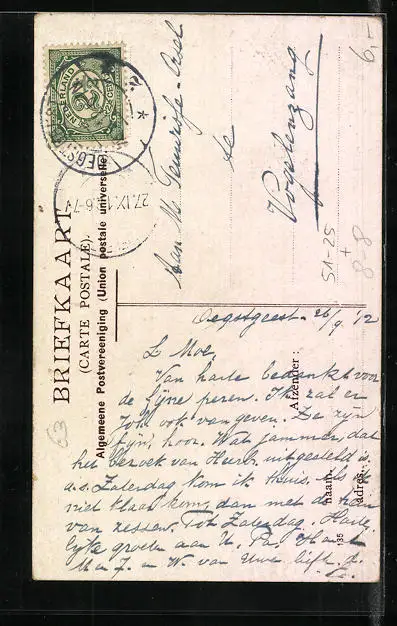 BRIEFKAART
(CARTE POSTALE).
Algemeene Postvereeniging (Union postale universelle)
NEDERLAND
27.IX.1
Aan
te
Vogelenzang
6,-
51-25
+
8-8
63
Afzender:
naam,
adres,
135
Oegstgeest 26/9 '12
L. Moe,
Van harte bedankt voor
de fijne peren. Ik zal er
Joh. ook van geven. Ze zijn
fijn, hoor. Wat jammer, dat
het bezoek van uitgesteld is.
a.s. Zaterdag kom ik thuis. Als ik
niet klaar kom, dan met de trein
van zessen. Tot Zaterdag. Harte-
lijke groeten aan U, Pa,
en W. van Uwe liefh. d.